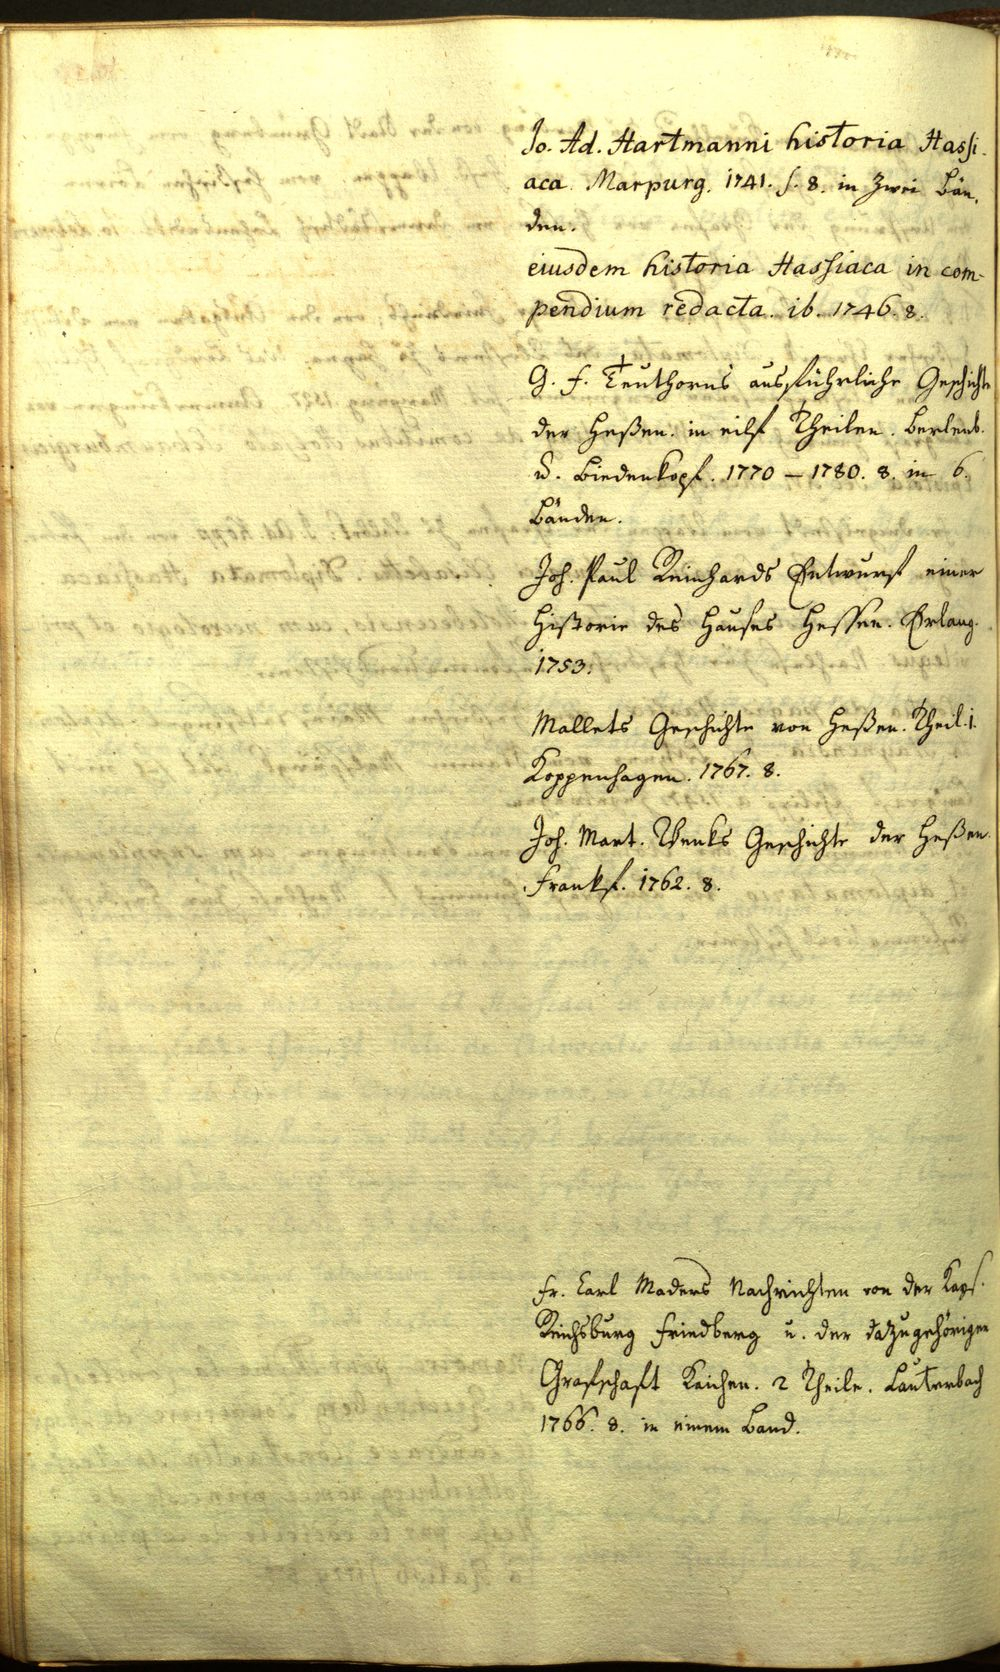 Jo. Ad. Hartmanni historia Hassi-
aca Marpurg. 1741. f. 8. in Zwei Bän-
den.
eiusdem historia Hassiaca in com-
pendium redacta. ib. 1746. 8.
G. F. Teuthorns ausführliche Geschichte
der Heßen. in eilf Theilen. Berlenb.
u. Biedenkopf. 1770 – 1780. 8. in 6.
Bänden.
Joh. Paul Reinhards Entwurf einer
Historie des Hauses Hessen. Erlang.
1753.
Mallets Geschichte von Heßen. Theil. 1.
Koppenhagen. 1767. 8.
Joh. Mart. Wenks Geschichte der Heßen.
Frankf. 1762. 8.
Fr. Carl Maders Nachrichten von der Kays.
Reichsburg Friedberg u. der dazugehörigen
Grafschaft Kaichen. 2 Theile. Lauterbach
1766. 8. in einem Band.